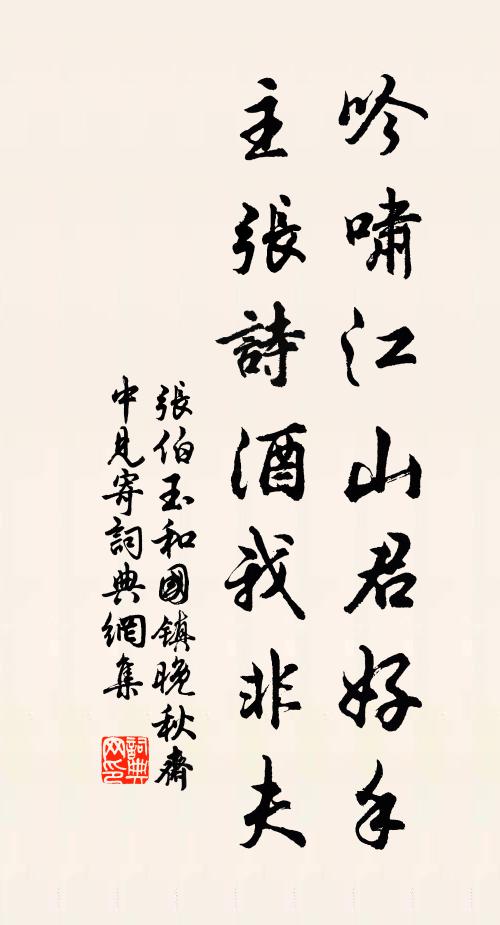 吟嘯江山君好手
主張詩酒我非夫
張伯玉和國鎮晚秋齋
中見寄詞典網集
詞典
网印